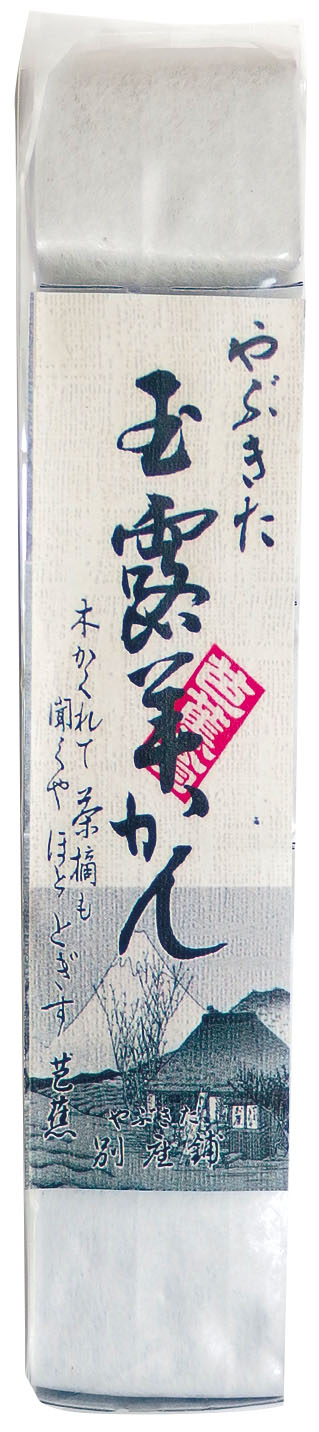 やぶきた
玉露羊かん
芭蕉
木かくれて 茶摘も
聞くや ほととぎす 芭蕉
やぶきた
別座鋪